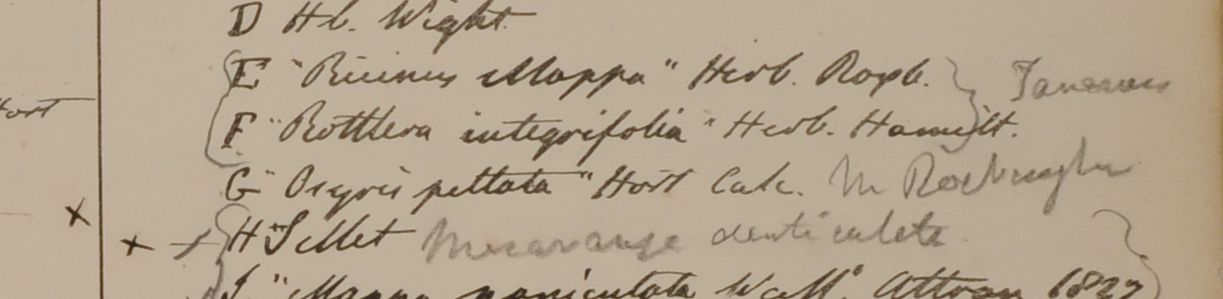 D Hb. Wight
E "Ricinus Mappa" Herb. Roxb. Tanarius
F "Rottlera integrifolia" Herb. Hamilt.
Hort
G "Osyris peltata" Hort Calc. M Roxburghii
x
x H Sillet Macaranga denticulata
I. "Mappa paniculata Wall" Attran 1827